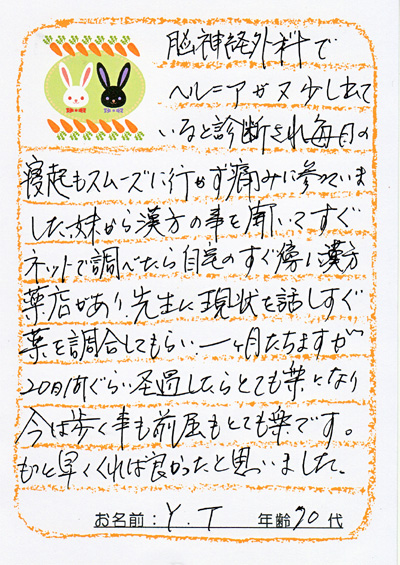 脳神経外科で
ヘルニアが又少し出て
いると診断され毎日の
寝起もスムーズに行かず痛みに参っていま
した、妹から漢方の事を聞いてすぐ
ネットで調べたら自宅のすぐ傍に漢方
薬店があり、先生に現状を話しすぐ
薬を調合してもらい、一ヶ月たちますが
20日間ぐらい経過したらとても楽になり
今は歩く事も前屈もとても楽です。
もっと早くくれば良かったと思いました、
お名前：Y.T 年齢70代